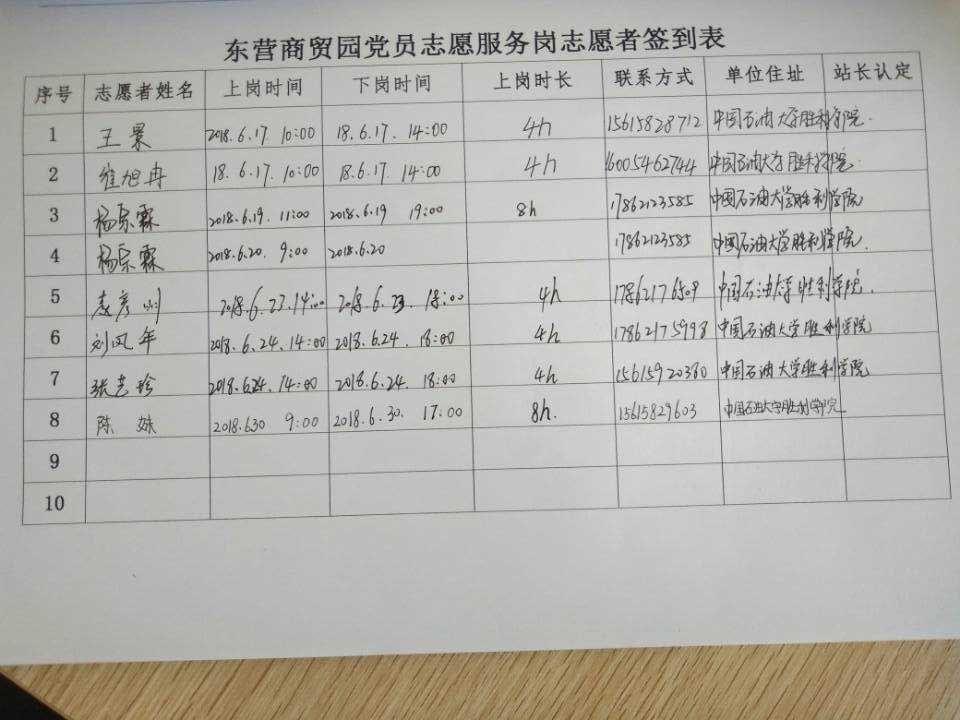 东营商贸园党员志愿服务岗志愿者签到表
序号 志愿者姓名 上岗时间 下岗时间 上岗时长 联系方式 单位住址 站长认定
1 王景 2018.6.17 10:00 18.6.17. 14:00 4h 15615828712 中国石油大学胜利学院.
2 旭冉 18.6.17. 10:00 18.6.17. 14:00 4h 16005462744 中国石油大学胜利学院.
3 杨宗霖 2018.6.19. 11:00 2018.6.19 19:00 8h 17862123585 中国石油大学胜利学院
4 杨宗霖 2018.6.20. 9:00 2018.6.20 17862123585 中国石油大学胜利学院.
5 彦 2018.6.23.14:00 2018.6.23. 18:00 4h 中国石油大学胜利学院.
6 刘风年 2018.6.24.14:00 2018.6.24. 18:00 4h 17862175998 中国石油大学胜利学院
7 张艺珍 2018.6.24. 14:00 2018.6.24. 18:00 4h 15615920380 中国石油大学胜利学院
8 陈姝 2018.630 9:00 2018.6.30. 17:00 8h. 15615829603 中国石油大学胜利学院
9
10